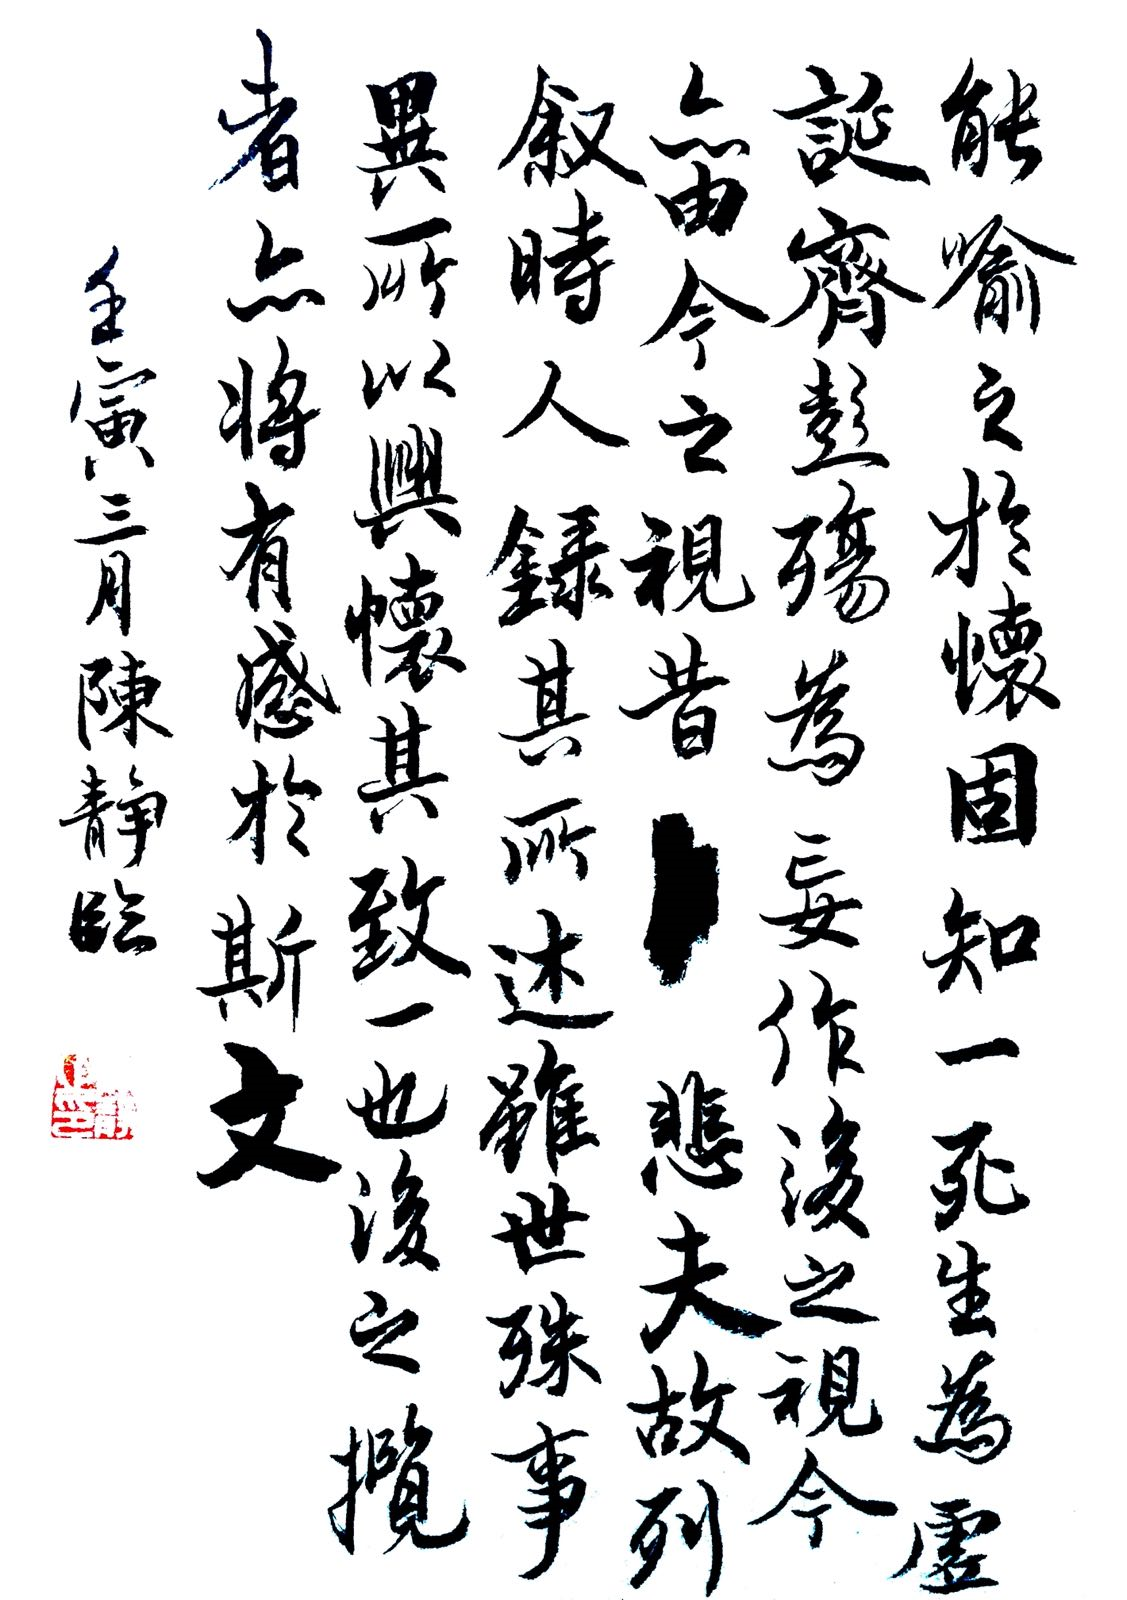 能喻之於懷固知一死生為虛
誕齊彭殤為妄作後之視今
亦由今之視昔悲夫故列
叙時人錄其所述雖世殊事
異所以興懷其致一也後之攬
者亦將有感於斯文
壬寅三月陳静臨